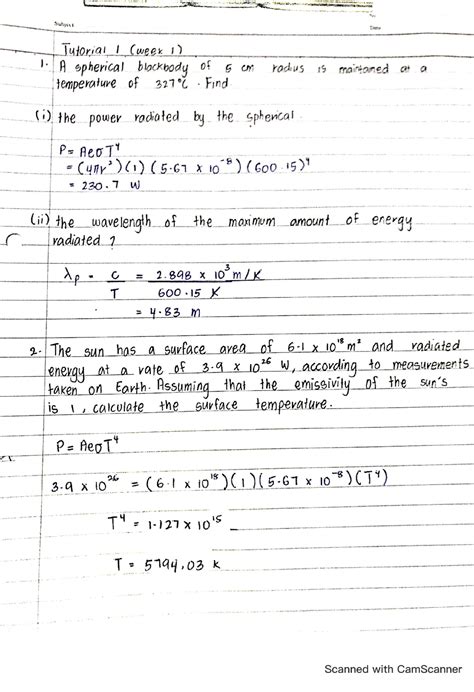 Subject
Date
Tutorial 1 (week 1)
1. A spherical blackbody of 5 cm radius is maintained at a
temperature of 327°C. Find
(i) the power radiated by the spherical
P = AeσT⁴
= (4πr²)(1)(5.67 x 10⁻⁸)(600.15)⁴
= 230.7 W
(ii) the wavelength of the maximum amount of energy
radiated ?
λp = c/T = 2.898 x 10³ m/K / 600.15 K
= 4.83 m
2. The sun has a surface area of 6.1 x 10¹⁸ m² and radiated
energy at a rate of 3.9 x 10²⁶ W, according to measurements
taken on Earth. Assuming that the emissivity of the sun's
is 1, calculate the surface temperature.
P = AeσT⁴
3.9 x 10²⁶ = (6.1 x 10¹⁸)(1)(5.67 x 10⁻⁸)(T⁴)
T⁴ = 1.127 x 10¹⁵
T = 5794.03 K
Scanned with CamScanner